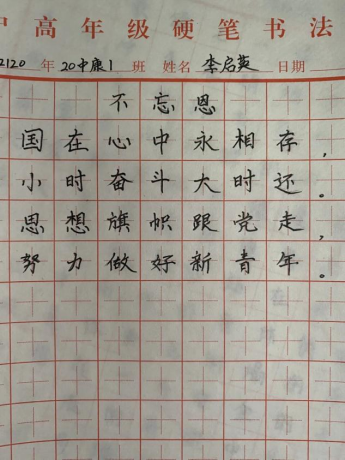 中高年级硬笔书法
2120 年 20中康1 班 姓名 李启英 日期
不忘恩
国在心中永相存，
小时奋斗大时还。
思想旗帜跟党走，
努力做好新青年。